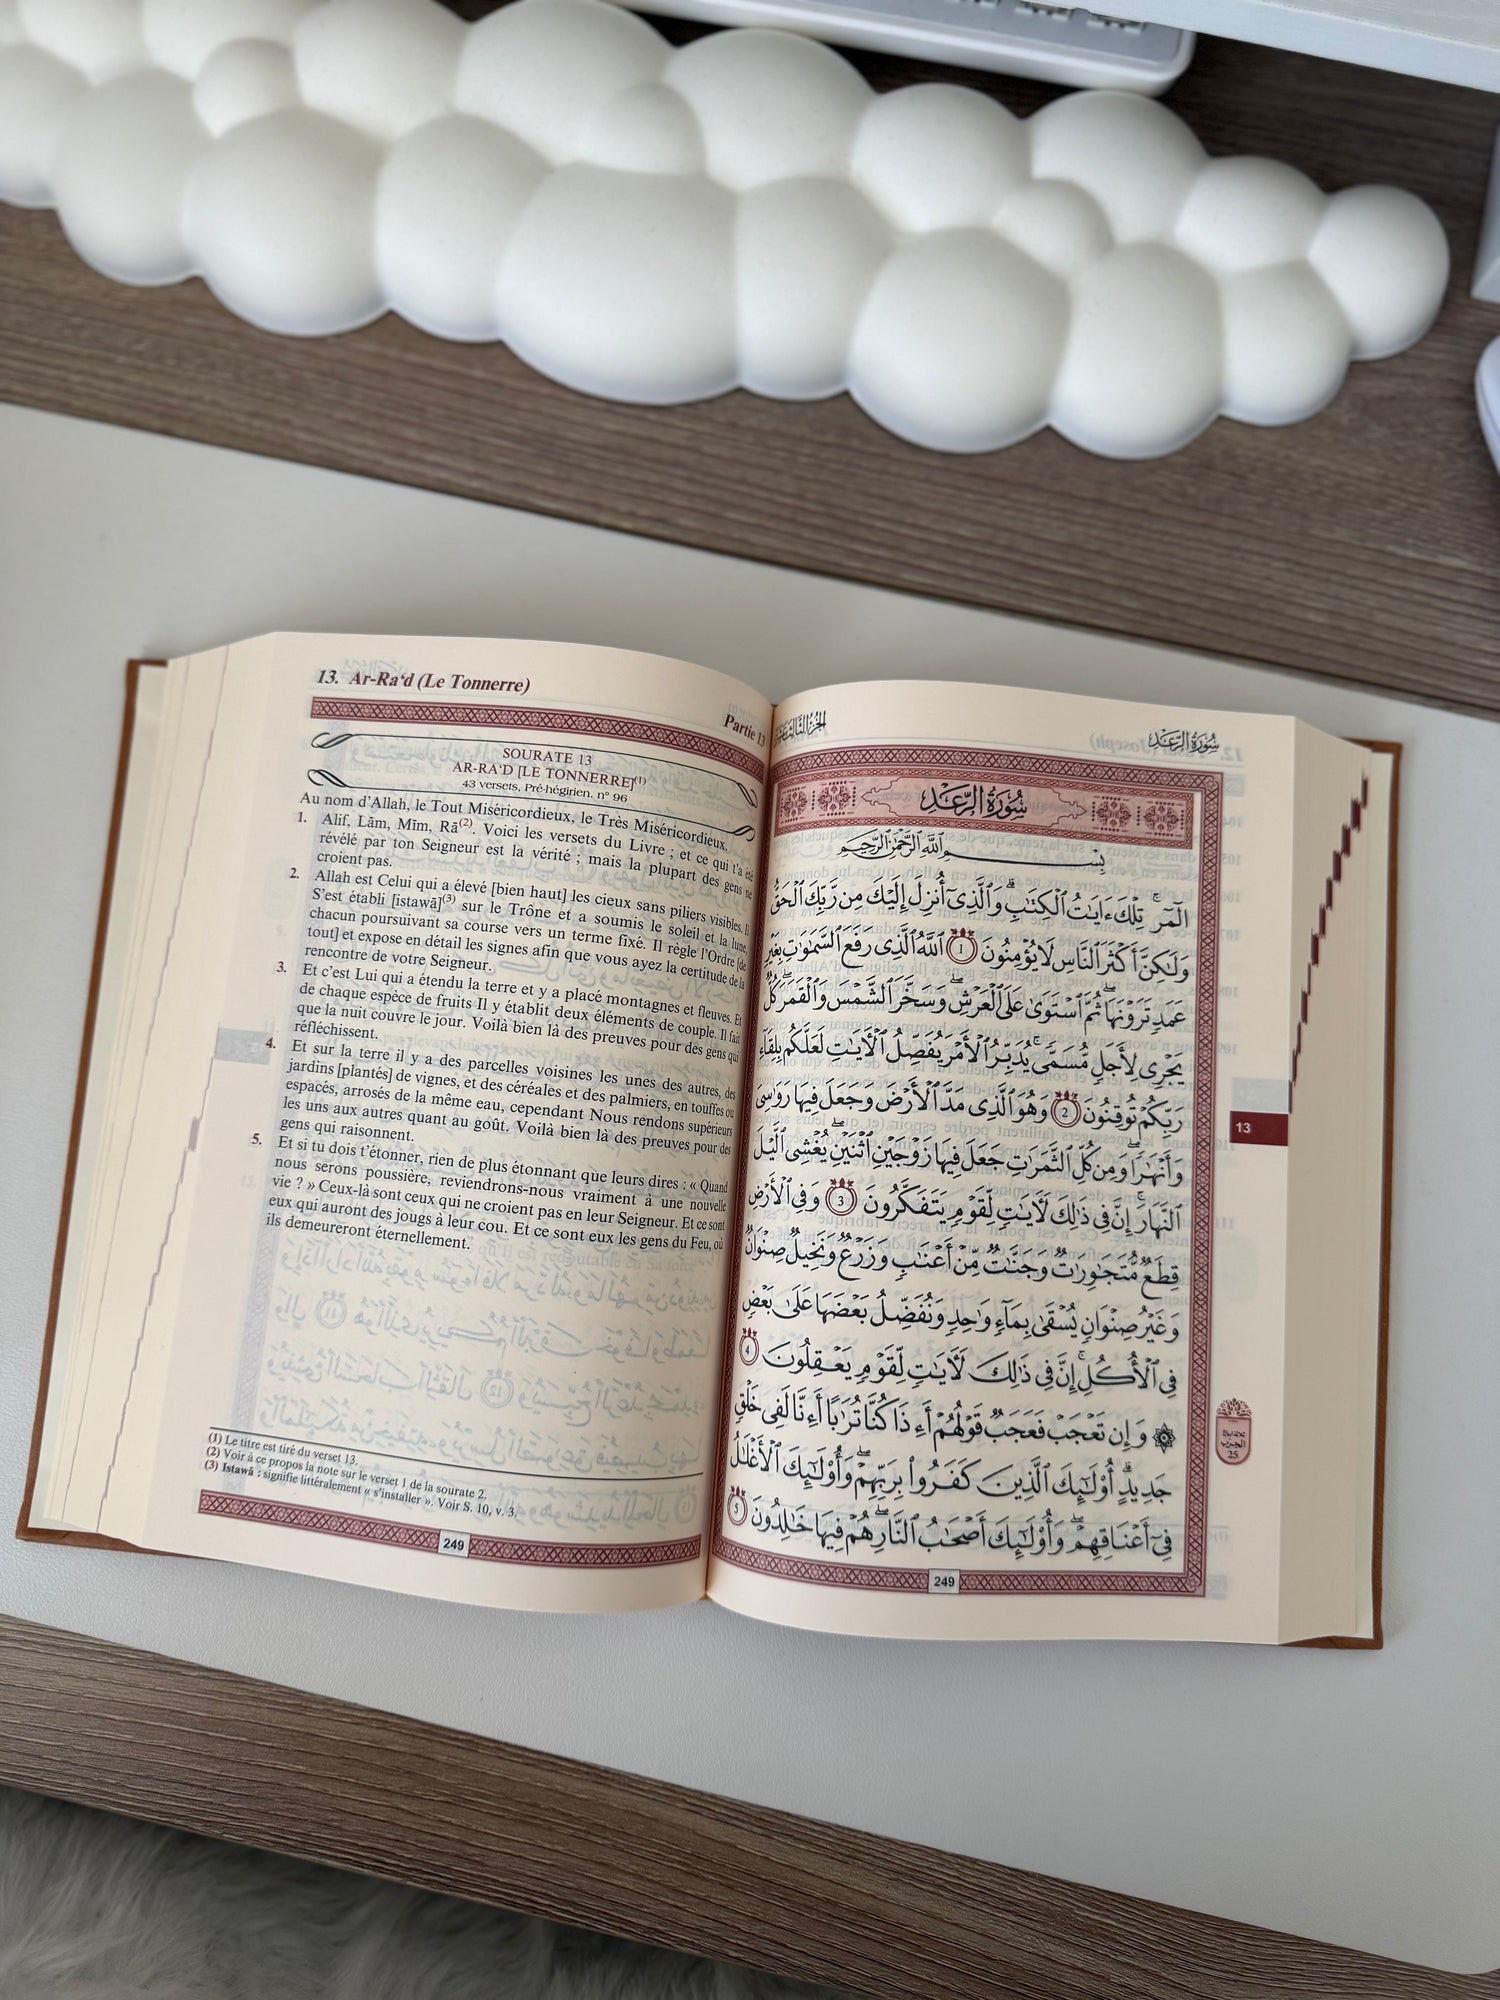 13. Ar-Ra‘d (Le Tonnerre)
Partie 13
SOURATE 13
AR-RA‘D [LE TONNERRE](1)
43 versets, Pré-hégirien. n° 96
Au nom d’Allah, le Tout Miséricordieux, le Très Miséricordieux.
1. Alif, Lām, Mīm, Rā(2). Voici les versets du Livre ; et ce qui t’a été
révélé par ton Seigneur est la vérité ; mais la plupart des gens ne
croient pas.
2. Allah est Celui qui a élevé [bien haut] les cieux sans piliers visibles. Il
S’est établi [istawā](3) sur le Trône et a soumis le soleil et la lune,
chacun poursuivant sa course vers un terme fixé. Il règle l’Ordre [de
tout] et expose en détail les signes afin que vous ayez la certitude de la
rencontre de votre Seigneur.
3. Et c’est Lui qui a étendu la terre et y a placé montagnes et fleuves. Et
de chaque espèce de fruits Il y établit deux éléments de couple. Il fait
que la nuit couvre le jour. Voilà bien là des preuves pour des gens qui
réfléchissent.
4. Et sur la terre il y a des parcelles voisines les unes des autres, des
jardins [plantés] de vignes, et des céréales et des palmiers, en touffes ou
espacés, arrosés de la même eau, cependant Nous rendons supérieurs
les uns aux autres quant au goût. Voilà bien là des preuves pour des
gens qui raisonnent.
5. Et si tu dois t’étonner, rien de plus étonnant que leurs dires : « Quand
nous serons poussière, reviendrons-nous vraiment à une nouvelle
vie ? » Ceux-là sont ceux qui ne croient pas en leur Seigneur. Et ce sont
eux qui auront des jougs à leur cou. Et ce sont eux les gens du Feu, où
ils demeureront éternellement.
(1) Le titre est tiré du verset 13.
(2) Voir à ce propos la note sur le verset 1 de la sourate 2.
(3) Istawā : signifie littéralement « s’installer ». Voir S. 10, v. 3.
249
سُورَةُ الرَّعْدِ
الجُزْءُ الثَّالِثَ عَشَرَ
سُورَةُ الرَّعْدِ
بِسْمِ ٱللَّهِ ٱلرَّحْمَٰنِ ٱلرَّحِيمِ
الٓمٓر ۚ تِلْكَ ءَايَٰتُ ٱلْكِتَٰبِ ۗ وَٱلَّذِىٓ أُنزِلَ إِلَيْكَ مِن رَّبِّكَ ٱلْحَقُّ
وَلَٰكِنَّ أَكْثَرَ ٱلنَّاسِ لَا يُؤْمِنُونَ ١ ٱللَّهُ ٱلَّذِى رَفَعَ ٱلسَّمَٰوَٰتِ بِغَيْرِ
عَمَدٍ تَرَوْنَهَا ۖ ثُمَّ ٱسْتَوَىٰ عَلَى ٱلْعَرْشِ ۖ وَسَخَّرَ ٱلشَّمْسَ وَٱلْقَمَرَ ۖ كُلٌّ
يَجْرِى لِأَجَلٍ مُّسَمًّى ۚ يُدَبِّرُ ٱلْأَمْرَ يُفَصِّلُ ٱلْأَيَٰتِ لَعَلَّكُم بِلِقَآءِ
رَبِّكُمْ تُوقِنُونَ ٢ وَهُوَ ٱلَّذِى مَدَّ ٱلْأَرْضَ وَجَعَلَ فِيهَا رَوَٰسِىَ
وَأَنْهَٰرًا ۖ وَمِن كُلِّ ٱلثَّمَرَٰتِ جَعَلَ فِيهَا زَوْجَيْنِ ٱثْنَيْنِ ۖ يُغْشِى ٱلَّيْلَ
ٱلنَّهَارَ ۚ إِنَّ فِى ذَٰلِكَ لَأَيَٰتٍ لِّقَوْمٍ يَتَفَكَّرُونَ ٣ وَفِى ٱلْأَرْضِ
قِطَعٌ مُّتَجَٰوِرَٰتٌ وَجَنَّٰتٌ مِّنْ أَعْنَٰبٍ وَزَرْعٌ وَنَخِيلٌ صِنْوَانٌ
وَغَيْرُ صِنْوَانٍ يُسْقَىٰ بِمَآءٍ وَٰحِدٍ وَنُفَضِّلُ بَعْضَهَا عَلَىٰ بَعْضٍ
فِى ٱلْأُكُلِ ۚ إِنَّ فِى ذَٰلِكَ لَأَيَٰتٍ لِّقَوْمٍ يَعْقِلُونَ ٤
۞ وَإِن تَعْجَبْ فَعَجَبٌ قَوْلُهُمْ أَءِذَا كُنَّا تُرَٰبًا أَءِنَّا لَفِى خَلْقٍ
جَدِيدٍ ۗ أُو۟لَٰٓئِكَ ٱلَّذِينَ كَفَرُوا۟ بِرَبِّهِمْ ۖ وَأُو۟لَٰٓئِكَ ٱلْأَغْلَٰلُ
فِىٓ أَعْنَاقِهِمْ ۖ وَأُو۟لَٰٓئِكَ أَصْحَٰبُ ٱلنَّارِ ۖ هُمْ فِيهَا خَٰلِدُونَ ٥
249
13
الحزب
25